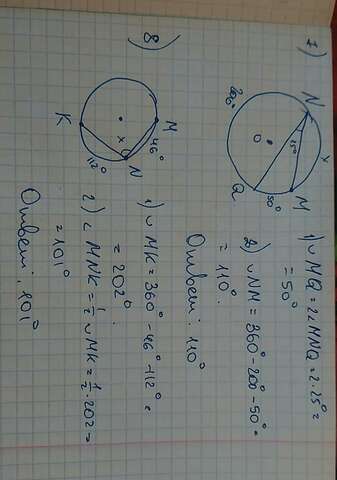 7)
N
25°
x
200°
O
M
Q
50°
1) ◡ MQ = 2∠MNQ = 2·25° =
= 50°
2) ◡NM = 360° - 200° - 50° =
= 110°.
Ответ: 110°
8)
M
46°
x
N
K
112°
1) ◡ MK = 360° - 46° - 112° =
= 202°.
2) ∠ MNK = ½ ◡MK = ½ · 202 =
= 101°
Ответ: 101°